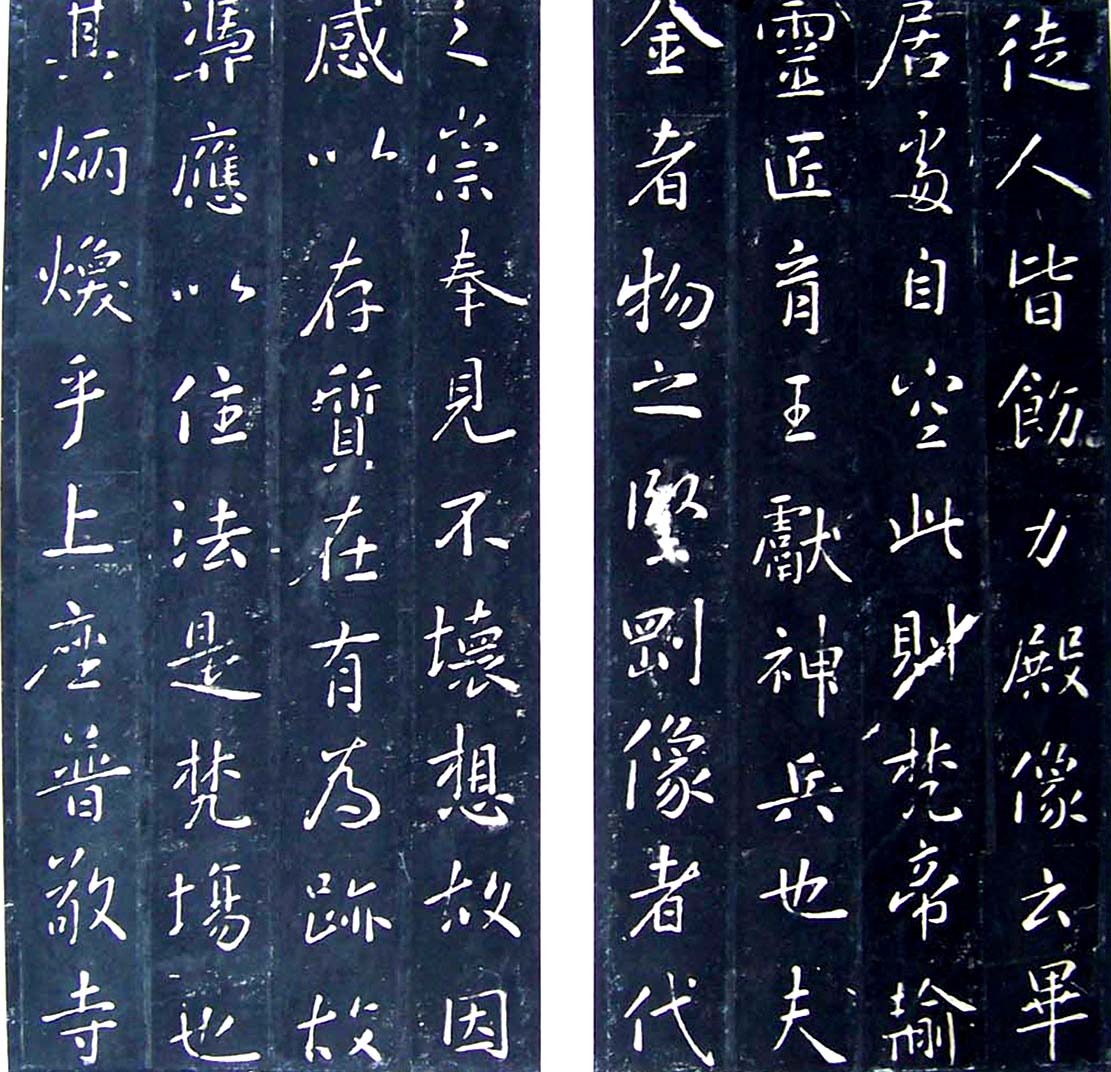 徒人皆飭力殿像云畢
居處自空此財梵帝輸
靈匠育王獻神兵也夫
金者物之堅剛像者代
之崇奉見不壞想故因
感以存質在有為跡故
憑應以住法是梵場也
其炳煥乎上座普敬寺